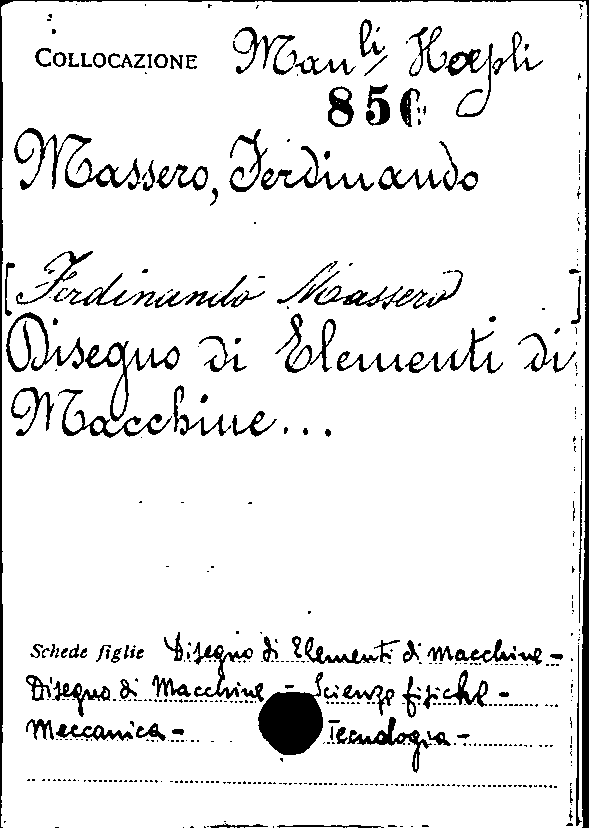 COLLOCAZIONE Man^li Hoepli
850
Massero, Ferdinando
[Ferdinando Massero]
Disegno di Elementi di
Macchine...
Schede figlie Disegno di Elementi di Macchine -
Disegno di Macchine - Scienze fisiche -
Meccanica - Tecnologia -